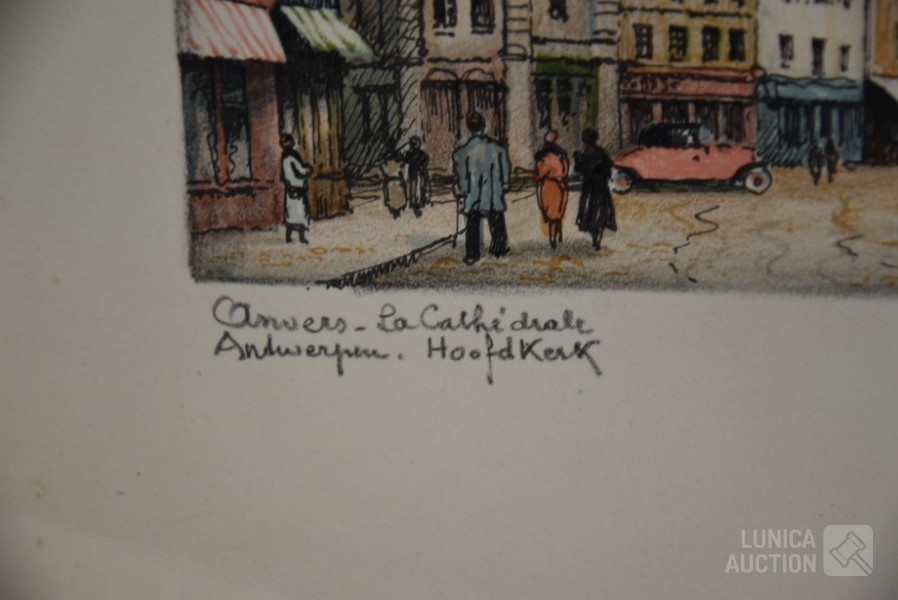 Anvers - La Cathédrale
Antwerpen. Hoofdkerk
LUNICA
AUCTION